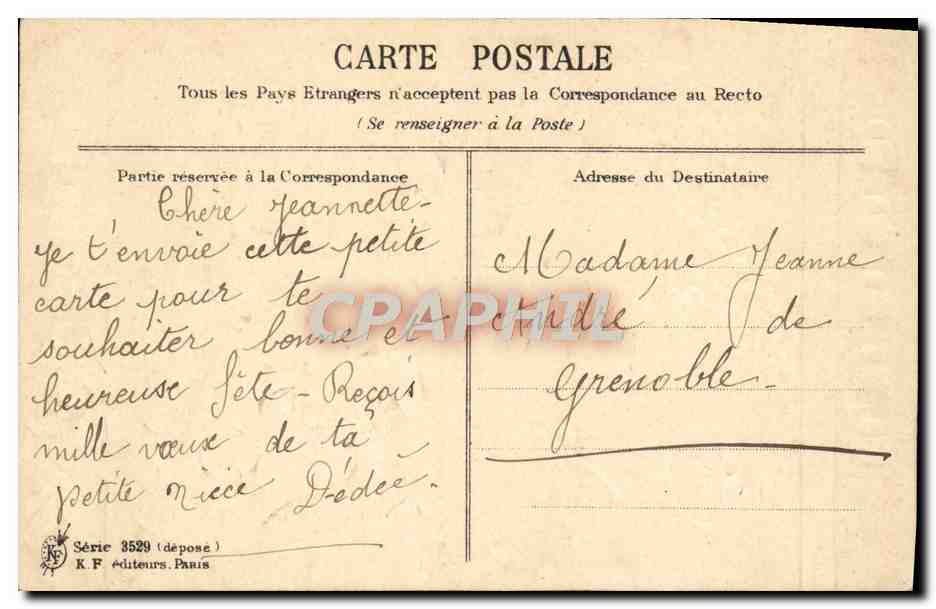 CARTE POSTALE
Tous les Pays Etrangers n'acceptent pas la Correspondance au Recto
(Se renseigner à la Poste)
Partie réservée à la Correspondance
Chère Jeannette-
Je t'envoie cette petite
carte pour te
souhaiter bonne et
heureuse fête - Reçois
mille vœux de ta
petite nièce Dédée.
KF
Série 3529 (déposé)
K.F éditeurs. PARIS
Adresse du Destinataire
Madame Jeanne
André de
Grenoble-
CPAPHIL